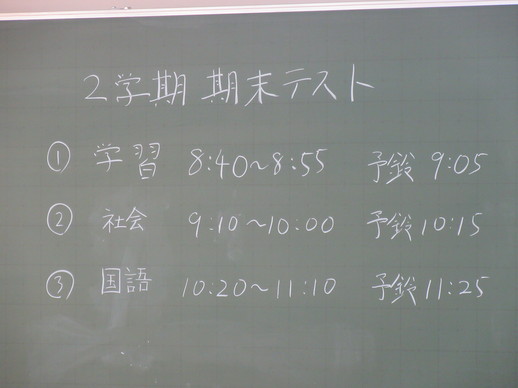 2学期 期末テスト
① 学習 8:40~8:55 予鈴 9:05
② 社会 9:10~10:00 予鈴 10:15
③ 国語 10:20~11:10 予鈴 11:25